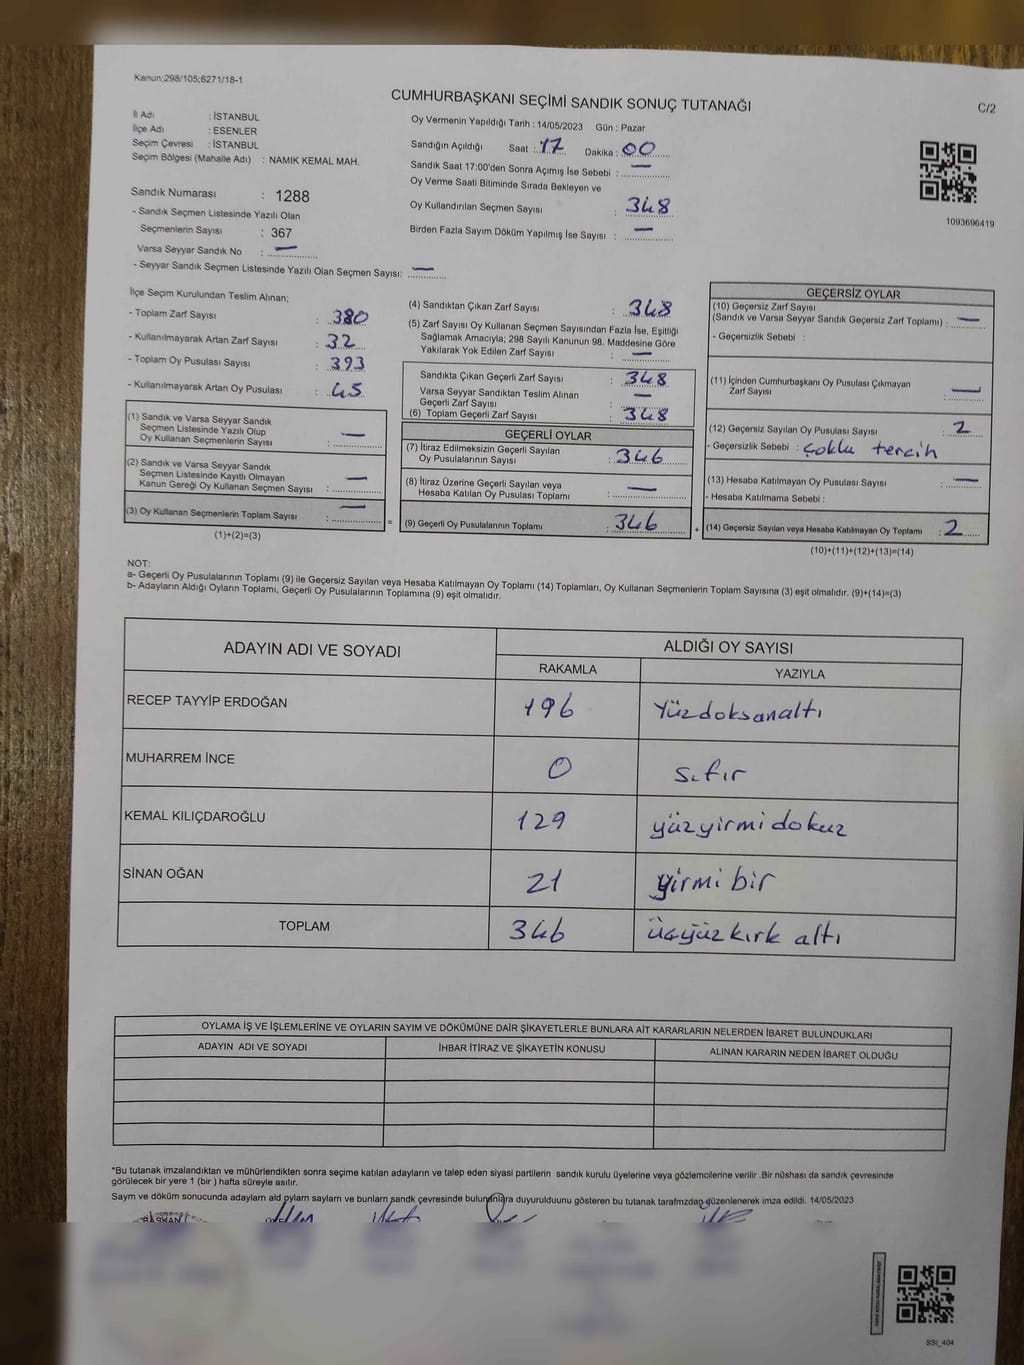 Kanun;298/105;6271/18-1
CUMHURBAŞKANI SEÇİMİ SANDIK SONUÇ TUTANAĞI
C/2
İl Adı : İSTANBUL
İlçe Adı : ESENLER
Seçim Çevresi : İSTANBUL
Seçim Bölgesi (Mahalle Adı) : NAMIK KEMAL MAH.
Sandık Numarası : 1288
- Sandık Seçmen Listesinde Yazılı Olan
Seçmenlerin Sayısı : 367
Varsa Seyyar Sandık No : —
- Seyyar Sandık Seçmen Listesinde Yazılı Olan Seçmen Sayısı: —
Oy Vermenin Yapıldığı Tarih : 14/05/2023 Gün : Pazar
Sandığın Açıldığı Saat : 17 Dakika : 00
Sandık Saat 17:00'den Sonra Açımış İse Sebebi : —
Oy Verme Saati Bitiminde Sırada Bekleyen ve
Oy Kullandırılan Seçmen Sayısı : 348
Birden Fazla Sayım Döküm Yapılmış İse Sayısı : —
1093696419
İlçe Seçim Kurulundan Teslim Alınan;
- Toplam Zarf Sayısı : 380
- Kullanılmayarak Artan Zarf Sayısı : 32
- Toplam Oy Pusulası Sayısı : 393
- Kullanılmayarak Artan Oy Pusulası : 45
(1) Sandık ve Varsa Seyyar Sandık
Seçmen Listesinde Yazılı Olup
Oy Kullanan Seçmenlerin Sayısı : —
(2) Sandık ve Varsa Seyyar Sandık
Seçmen Listesinde Kayıtlı Olmayan
Kanun Gereği Oy Kullanan Seçmen Sayısı : —
(3) Oy Kullanan Seçmenlerin Toplam Sayısı : —
(1)+(2)=(3)
=
(4) Sandıktan Çıkan Zarf Sayısı : 348
(5) Zarf Sayısı Oy Kullanan Seçmen Sayısından Fazla İse, Eşitliği
Sağlamak Amacıyla; 298 Sayılı Kanunun 98. Maddesine Göre
Yakılarak Yok Edilen Zarf Sayısı : —
Sandıkta Çıkan Geçerli Zarf Sayısı : 348
Varsa Seyyar Sandıktan Teslim Alınan
Geçerli Zarf Sayısı : —
(6) Toplam Geçerli Zarf Sayısı : 348
GEÇERLİ OYLAR
(7) İtiraz Edilmeksizin Geçerli Sayılan
Oy Pusulalarının Sayısı : 346
(8) İtiraz Üzerine Geçerli Sayılan veya
Hesaba Katılan Oy Pusulası Toplamı : —
(9) Geçerli Oy Pusulalarının Toplamı : 346
+
GEÇERSİZ OYLAR
(10) Geçersiz Zarf Sayısı
(Sandık ve Varsa Seyyar Sandık Geçersiz Zarf Toplamı) : —
- Geçersizlik Sebebi :
(11) İçinden Cumhurbaşkanı Oy Pusulası Çıkmayan
Zarf Sayısı : —
(12) Geçersiz Sayılan Oy Pusulası Sayısı : 2
- Geçersizlik Sebebi : çoklu tercih
(13) Hesaba Katılmayan Oy Pusulası Sayısı : —
- Hesaba Katılmama Sebebi :
(14) Geçersiz Sayılan veya Hesaba Katılmayan Oy Toplamı : 2
(10)+(11)+(12)+(13)=(14)
NOT:
a- Geçerli Oy Pusulalarının Toplamı (9) ile Geçersiz Sayılan veya Hesaba Katılmayan Oy Toplamı (14) Toplamları, Oy Kullanan Seçmenlerin Toplam Sayısına (3) eşit olmalıdır. (9)+(14)=(3)
b- Adayların Aldığı Oyların Toplamı, Geçerli Oy Pusulalarının Toplamına (9) eşit olmalıdır.
ADAYIN ADI VE SOYADI ALDIĞI OY SAYISI
RAKAMLA YAZIYLA
RECEP TAYYİP ERDOĞAN 196 Yüzdoksanaltı
MUHARREM İNCE 0 sıfır
KEMAL KILIÇDAROĞLU 129 yüzyirmidokuz
SİNAN OĞAN 21 yirmi bir
TOPLAM 346 üçyüzkırk altı
OYLAMA İŞ VE İŞLEMLERİNE VE OYLARIN SAYIM VE DÖKÜMÜNE DAİR ŞİKAYETLERLE BUNLARA AİT KARARLARIN NELERDEN İBARET BULUNDUKLARI
ADAYIN ADI VE SOYADI İHBAR İTİRAZ VE ŞİKAYETİN KONUSU ALINAN KARARIN NEDEN İBARET OLDUĞU
*Bu tutanak imzalandıktan ve mühürlendikten sonra seçime katılan adayların ve talep eden siyasi partilerin sandık kurulu üyelerine veya gözlemcilerine verilir .Bir nüshası da sandık çevresinde
görülecek bir yere 1 (bir ) hafta süreyle asılır.
Saym ve döküm sonucunda adaylarn ald oylarn saylarn ve bunlarn sandk çevresinde bulunanlara duyurulduunu gösteren bu tutanak tarafmzdan düzenlenerek imza edildi. 14/05/2023
BAŞKAN
SSI_404